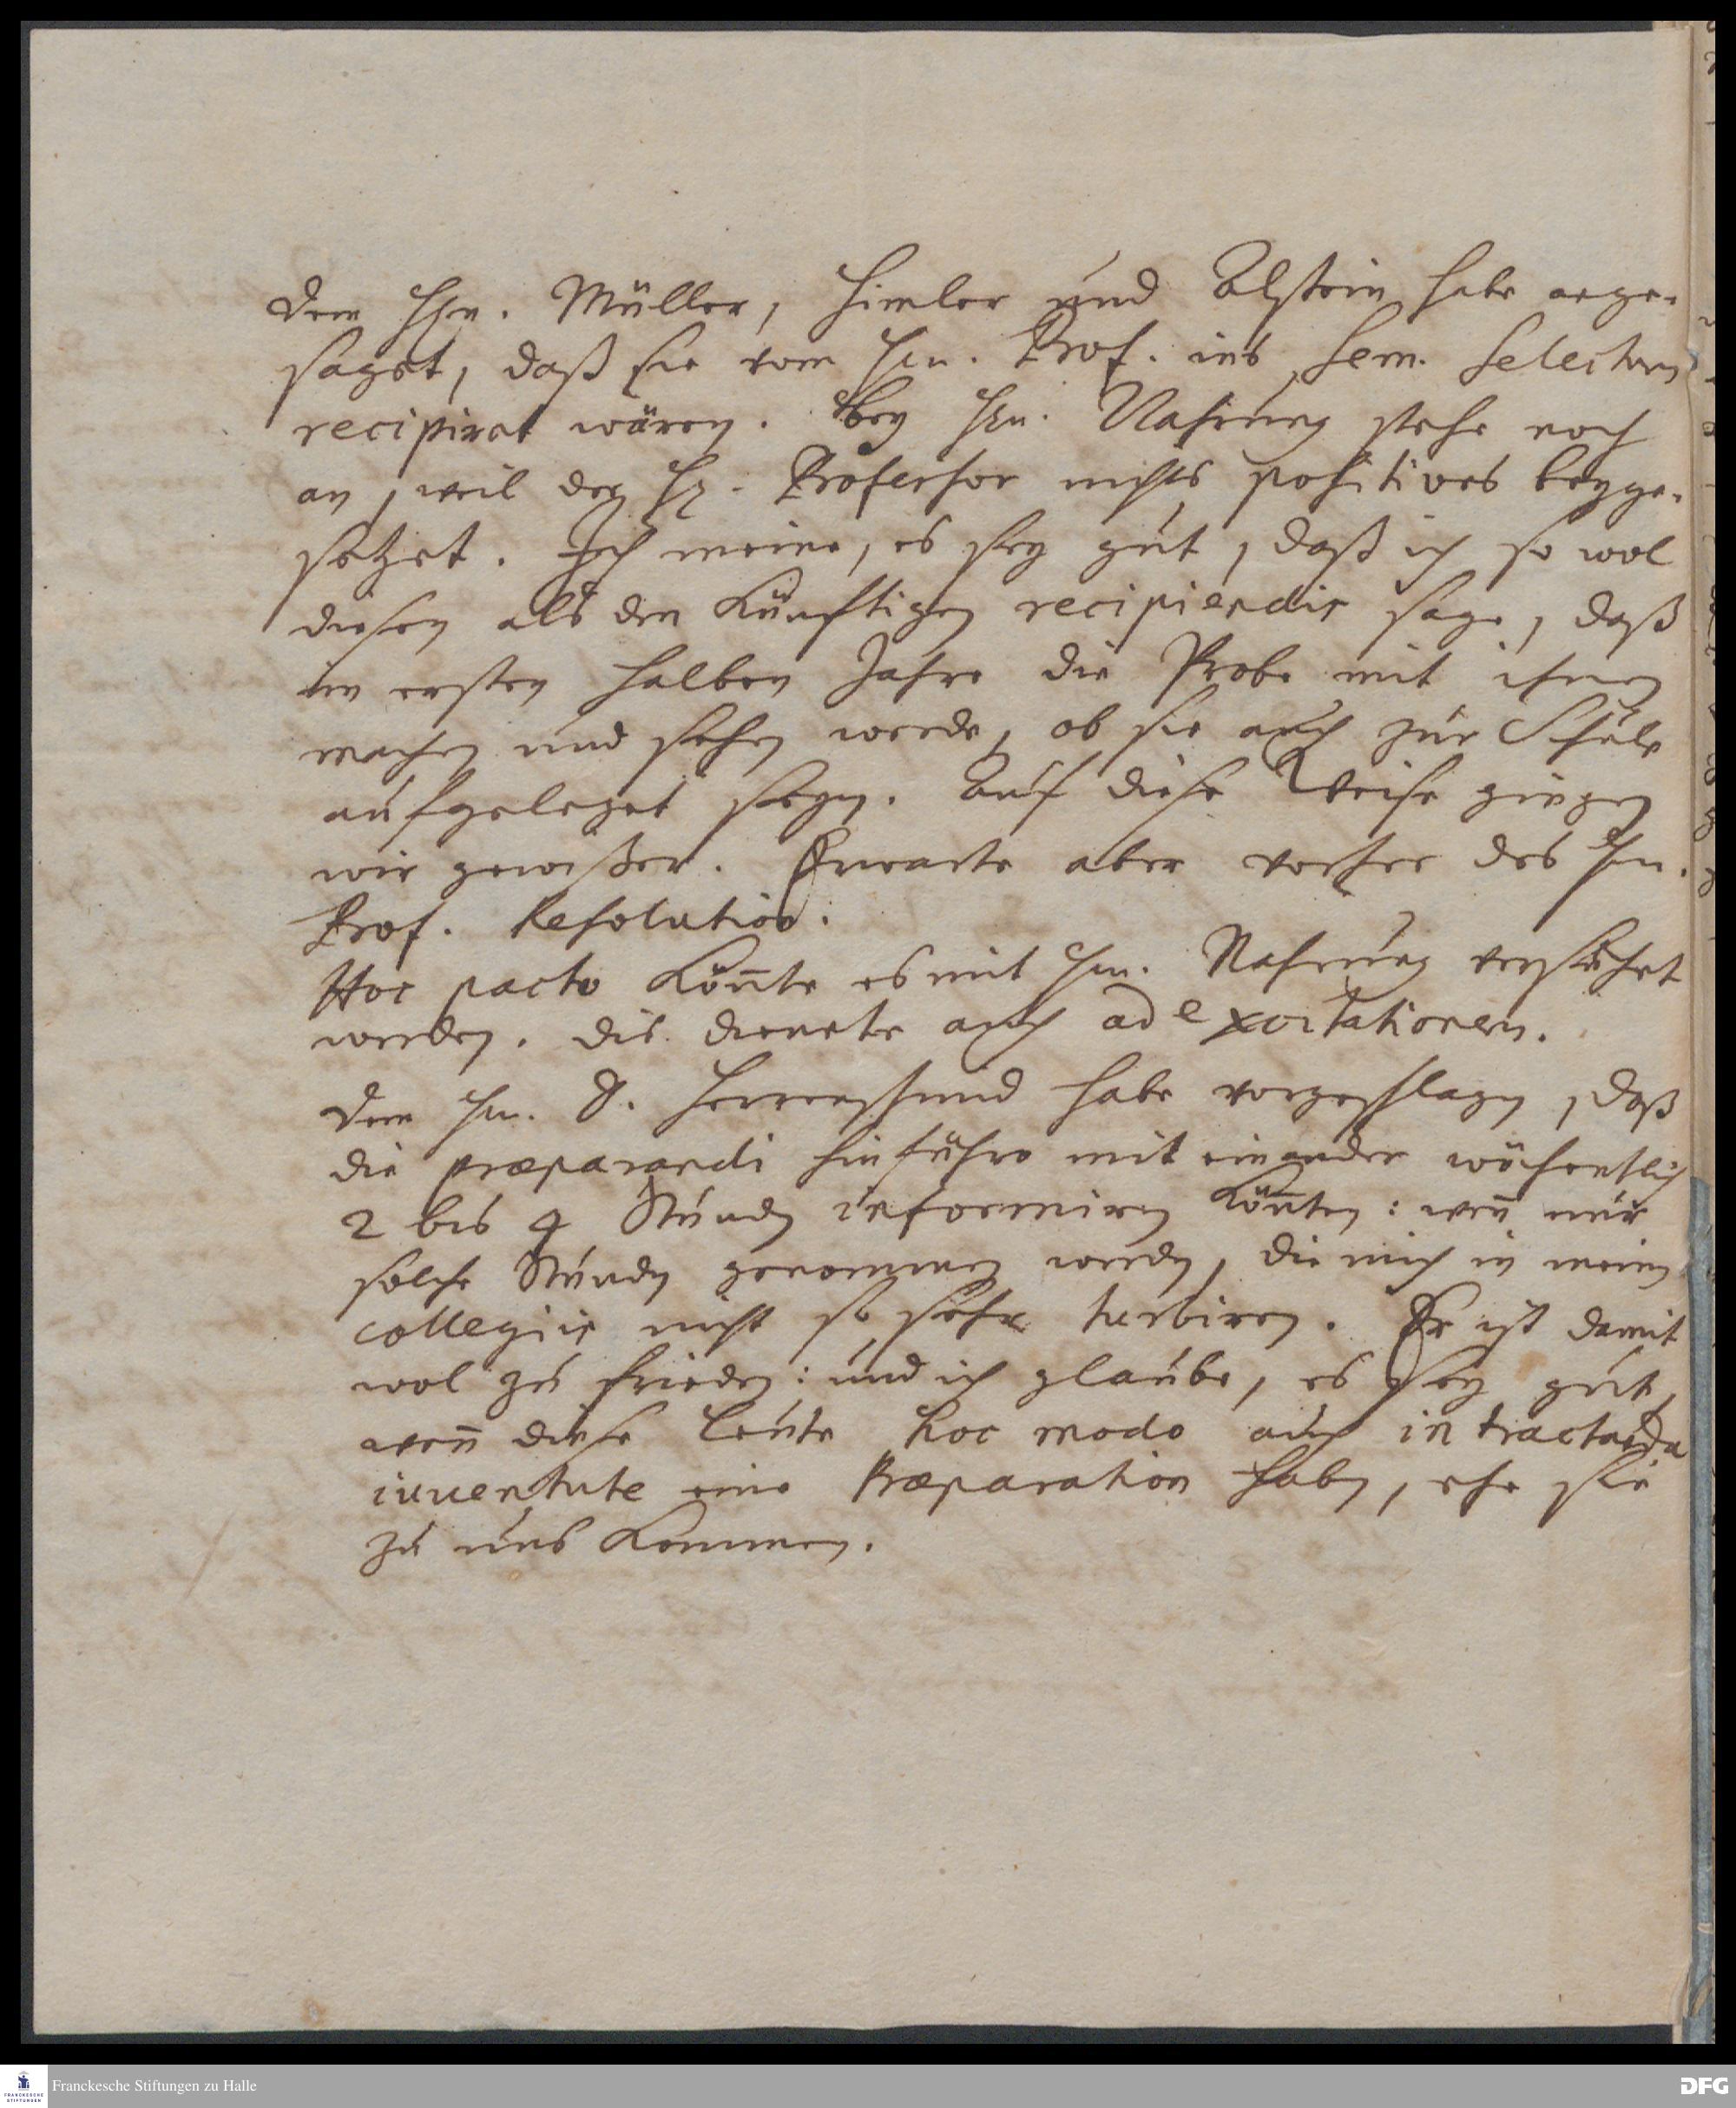 Dem HHn. Müller, Himler und Alstein habe ange-
saget, daß sie vom Hrn. Prof. ins Sem. Selectum
recipirat wären. Bey Hrn. Nahrung stehe noch
an, weil der Hr. Professor nichts positives beyge-
setzet. Ich meine, es sey gut, daß ich so wol
diesen als den künftigen recipiendis sage, daß
im ersten halben Jahre die Probe mit ihnen
machen und sehen werde, ob sie auch zur Schule
aufgeleget seyn. Auf diese Weise giengen
wir gewißer. Erwarte aber vorher des Hrn.
Prof. Resolution.
Hoc pacto kön̄te es mit Hrn. Nahrung versucht
werden. Dis dienete auch ad excitationem.
Dem Hrn. D. Herrnschmid habe vorgeschlagen, daß
die præparandi hinführo mit einander wöchentlich
2 bis 4 Stunden informiren kön̄ten: wen̄ nur
solche Stunden genommen werden, die mich in meinen
collegiis nicht so sehr turbiren. Er ist damit
wol zu frieden: und ich glaube, es sey gut,
wen̄ diese Leute hoc modo auch in tractanda
iuventute eine Præparation haben, ehe sie
zu uns kommen.
Franckesche Stiftungen zu Halle
FRANCKESCHE
STIFTUNGEN
DFG